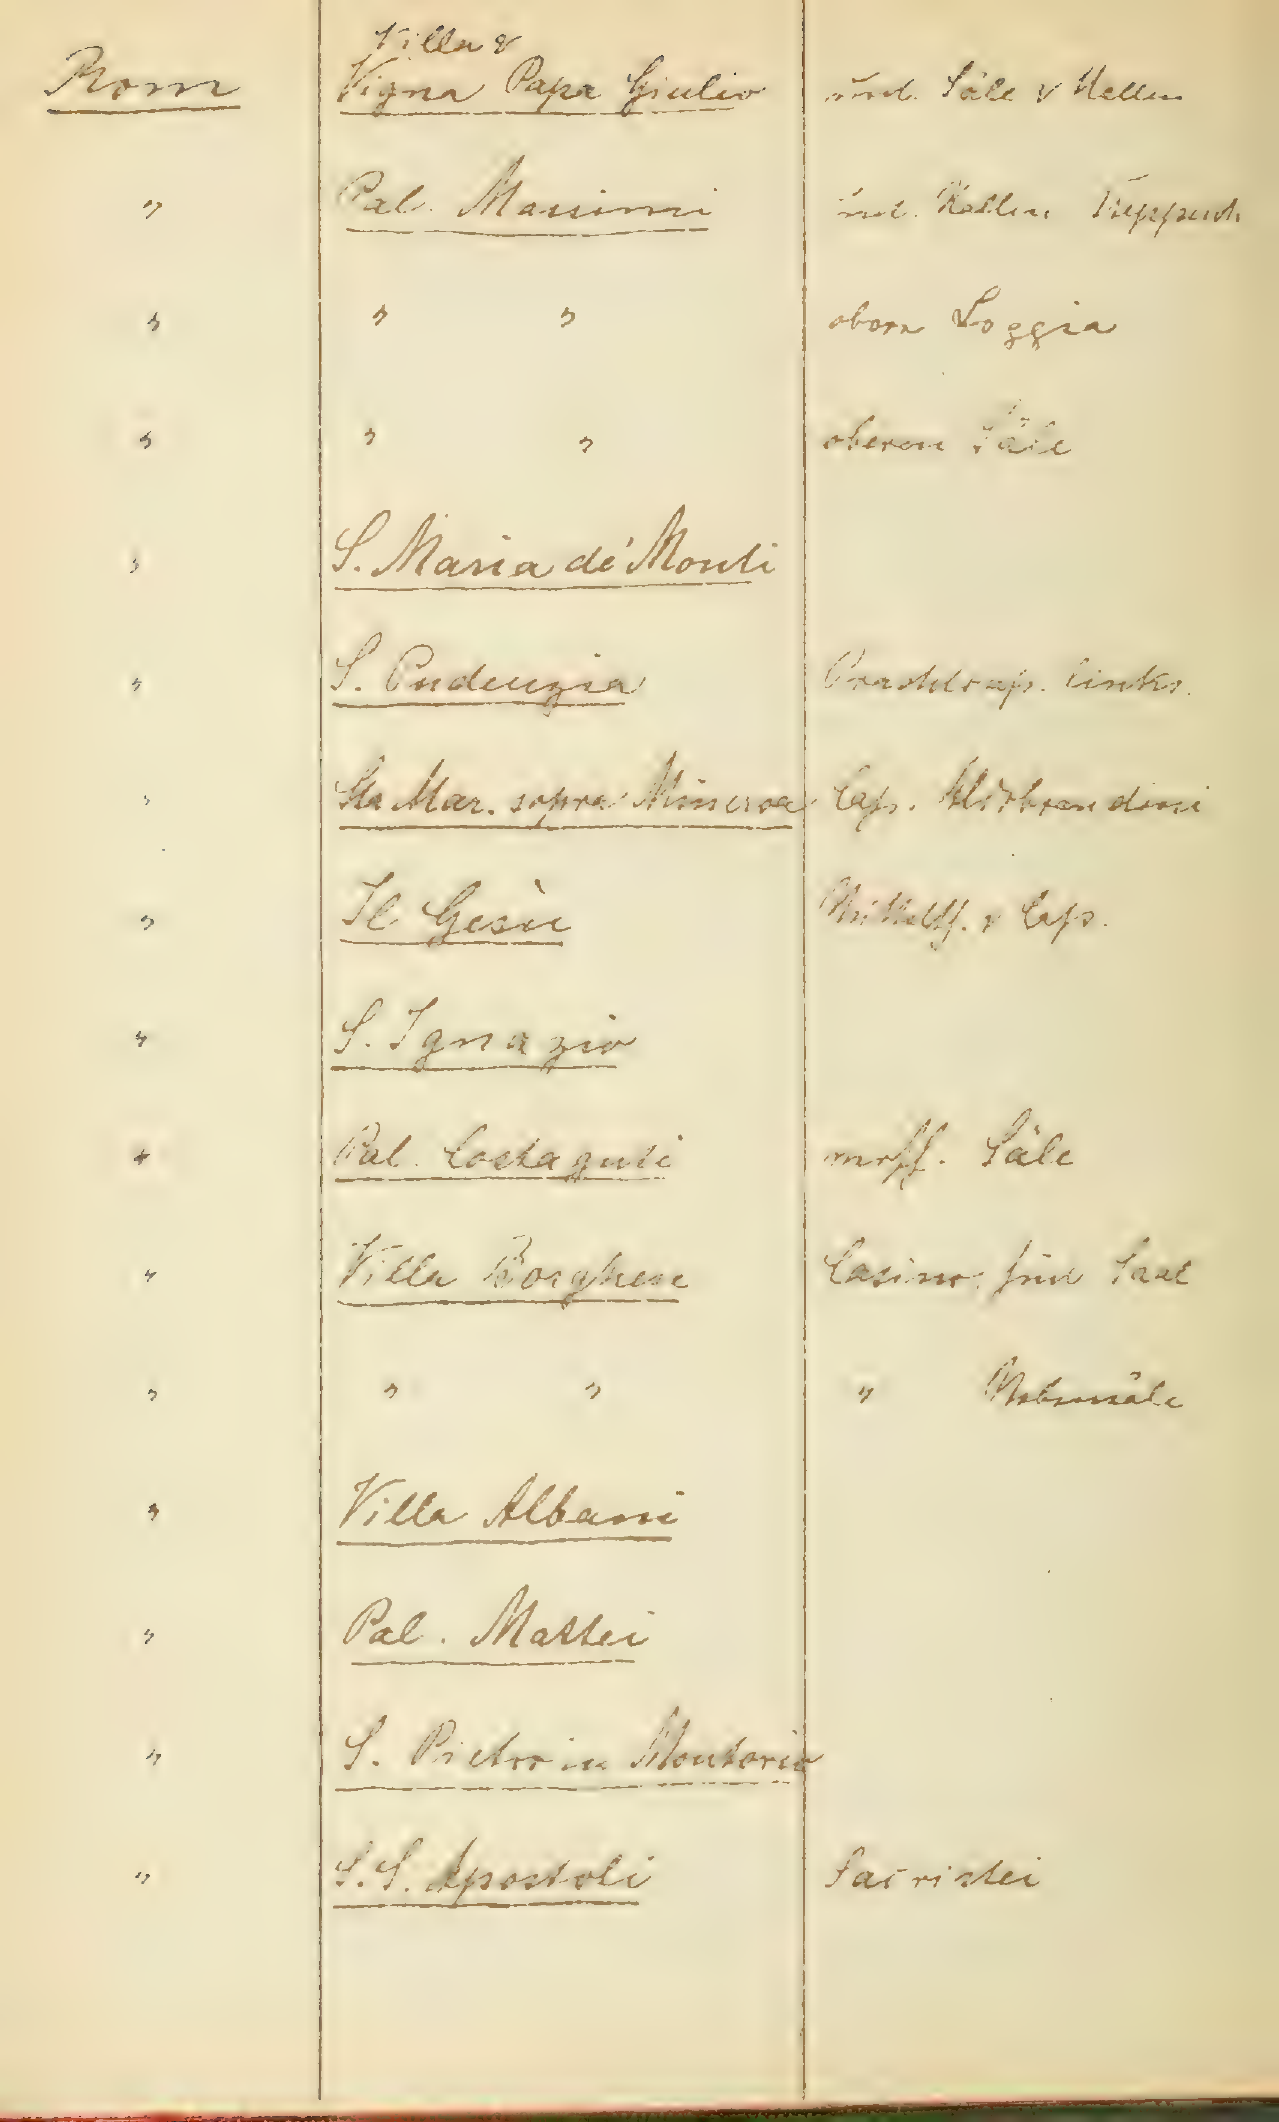 Villa &
Rom Vigna Papa Giulio und. Säle & Hallen
" Pal. Massimi und. Hallen
" " " obere Loggia
" " " oberen Säle
" S. Maria de' Monti
" S. Pudenzia Prachtcap. links.
" Sta Mar. sopra Minerva Cap. Aldobrandini
" Il Gesù Mittelsch. & Cap.
" S. Ignazio
" Pal. Costaguti Säle
" Villa Borghese Casino. Saal
" " " "
" Villa Albani
" Pal. Mattei
" S. Pietro in Montorio
" S.S. Apostoli Sacristei